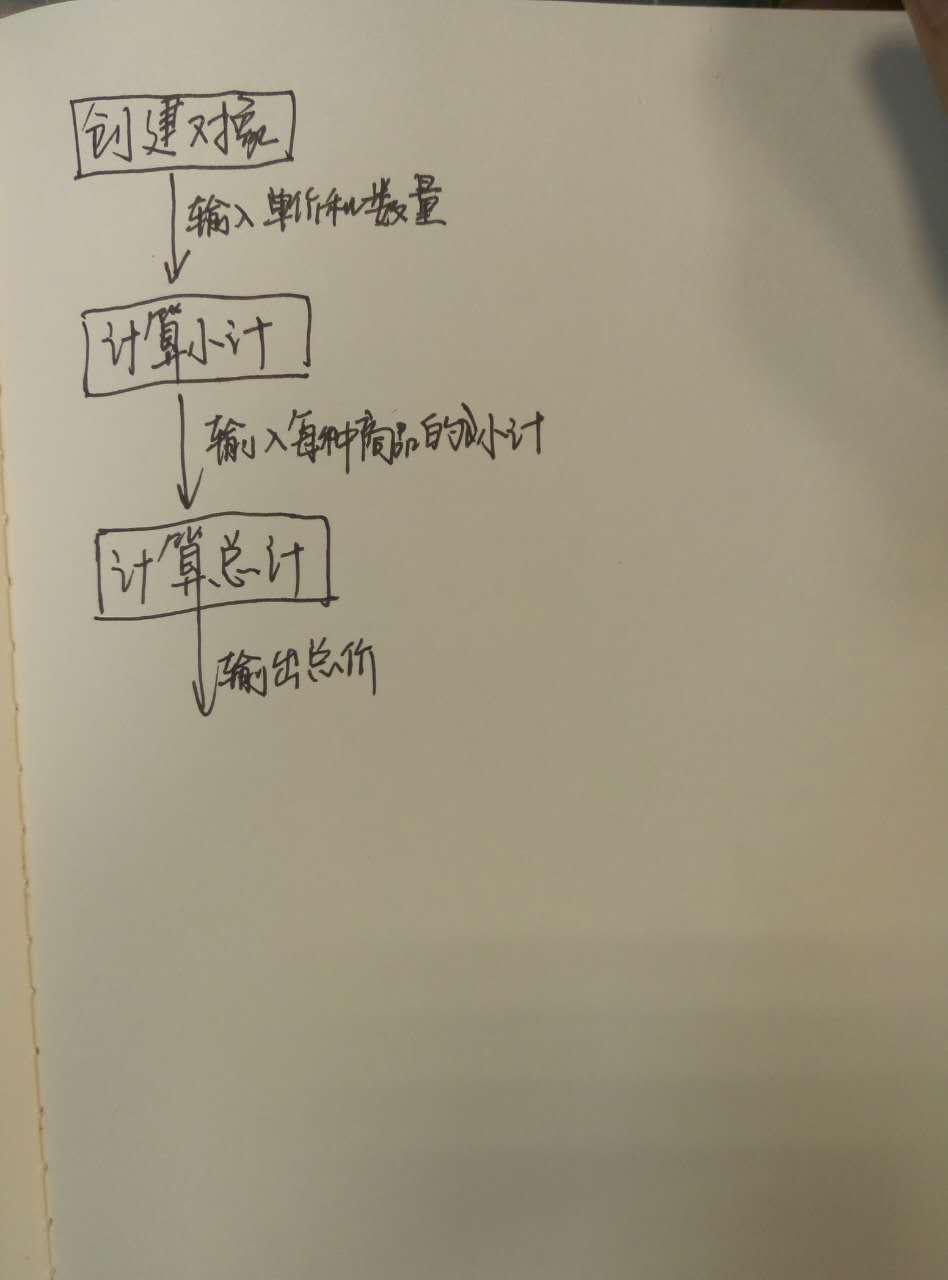 创建对象
输入单价和数量
计算小计
输入每种商品的小计
计算总计
输出总价